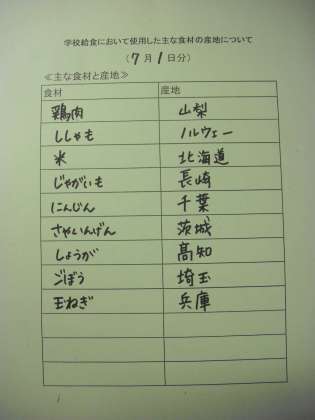 学校給食において使用した主な食材の産地について
(7月1日分)
≪主な食材と産地≫
食材 産地
鶏肉 山梨
ししゃも ノルウェー
米 北海道
じゃがいも 長崎
にんじん 千葉
さやいんげん 茨城
しょうが 高知
ごぼう 埼玉
玉ねぎ 兵庫